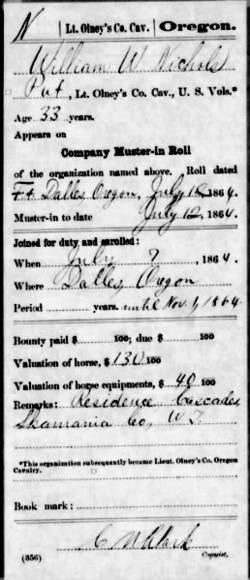 N | Lt. Olney's Co. Cav. | Oregon.
William W Nichols
Pvt, Lt. Olney's Co. Cav., U. S. Vols.*
Age 33 years.
Appears on
Company Muster-in Roll
of the organization named above. Roll dated
Ft Dalles, Oregon, July 12, 1864.
Muster-in to date July 12, 1864.
Joined for duty and enrolled:
When July 7, 1864.
Where Dalles, Oregon
Period years. until Nov. 1, 1864.
Bounty paid $ 100; due $ 100
Valuation of horse, $ 130 100
Valuation of horse equipments, $ 40 100
Remarks: Residence Cascades
Skamania Co, W.T.
*This organization subsequently became Lieut. Olney's Co. Oregon
Cavalry.
Book mark:
Clark
(356) Copyist.